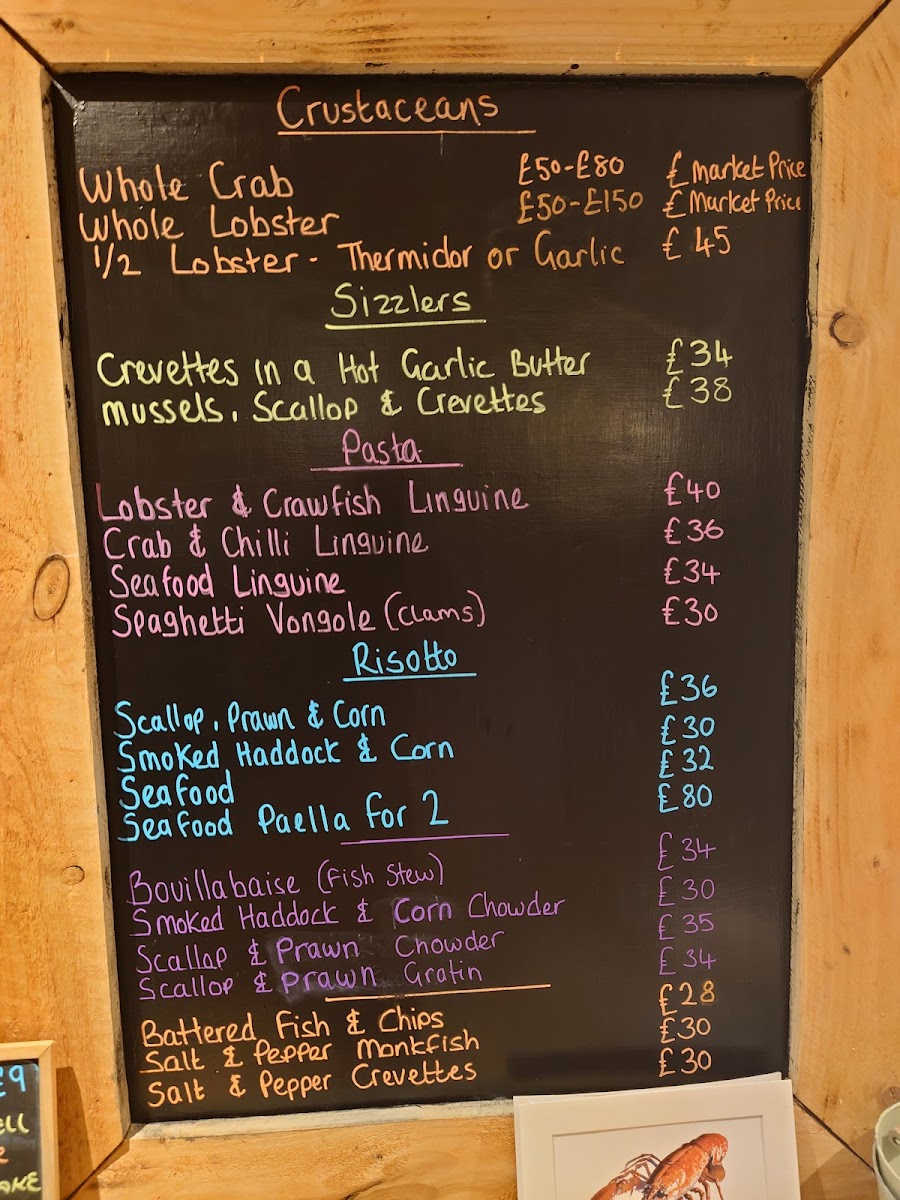 Crustaceans
Whole Crab £50-£80 £ Market Price
Whole Lobster £50-£150 £ Market Price
1/2 Lobster - Thermidor or Garlic £45
Sizzlers
Crevettes in a Hot Garlic Butter £34
Mussels, Scallop & Crevettes £38
Pasta
Lobster & Crawfish Linguine £40
Crab & Chilli Linguine £36
Seafood Linguine £34
Spaghetti Vongole (Clams) £30
Risotto
Scallop, Prawn & Corn £36
Smoked Haddock & Corn £30
Seafood £32
Seafood Paella for 2 £80
Bouillabaise (Fish Stew) £34
Smoked Haddock & Corn Chowder £30
Scallop & Prawn Chowder £35
Scallop & Prawn Gratin £34
Battered Fish & Chips £28
Salt & Pepper Monkfish £30
Salt & Pepper Crevettes £30
£9